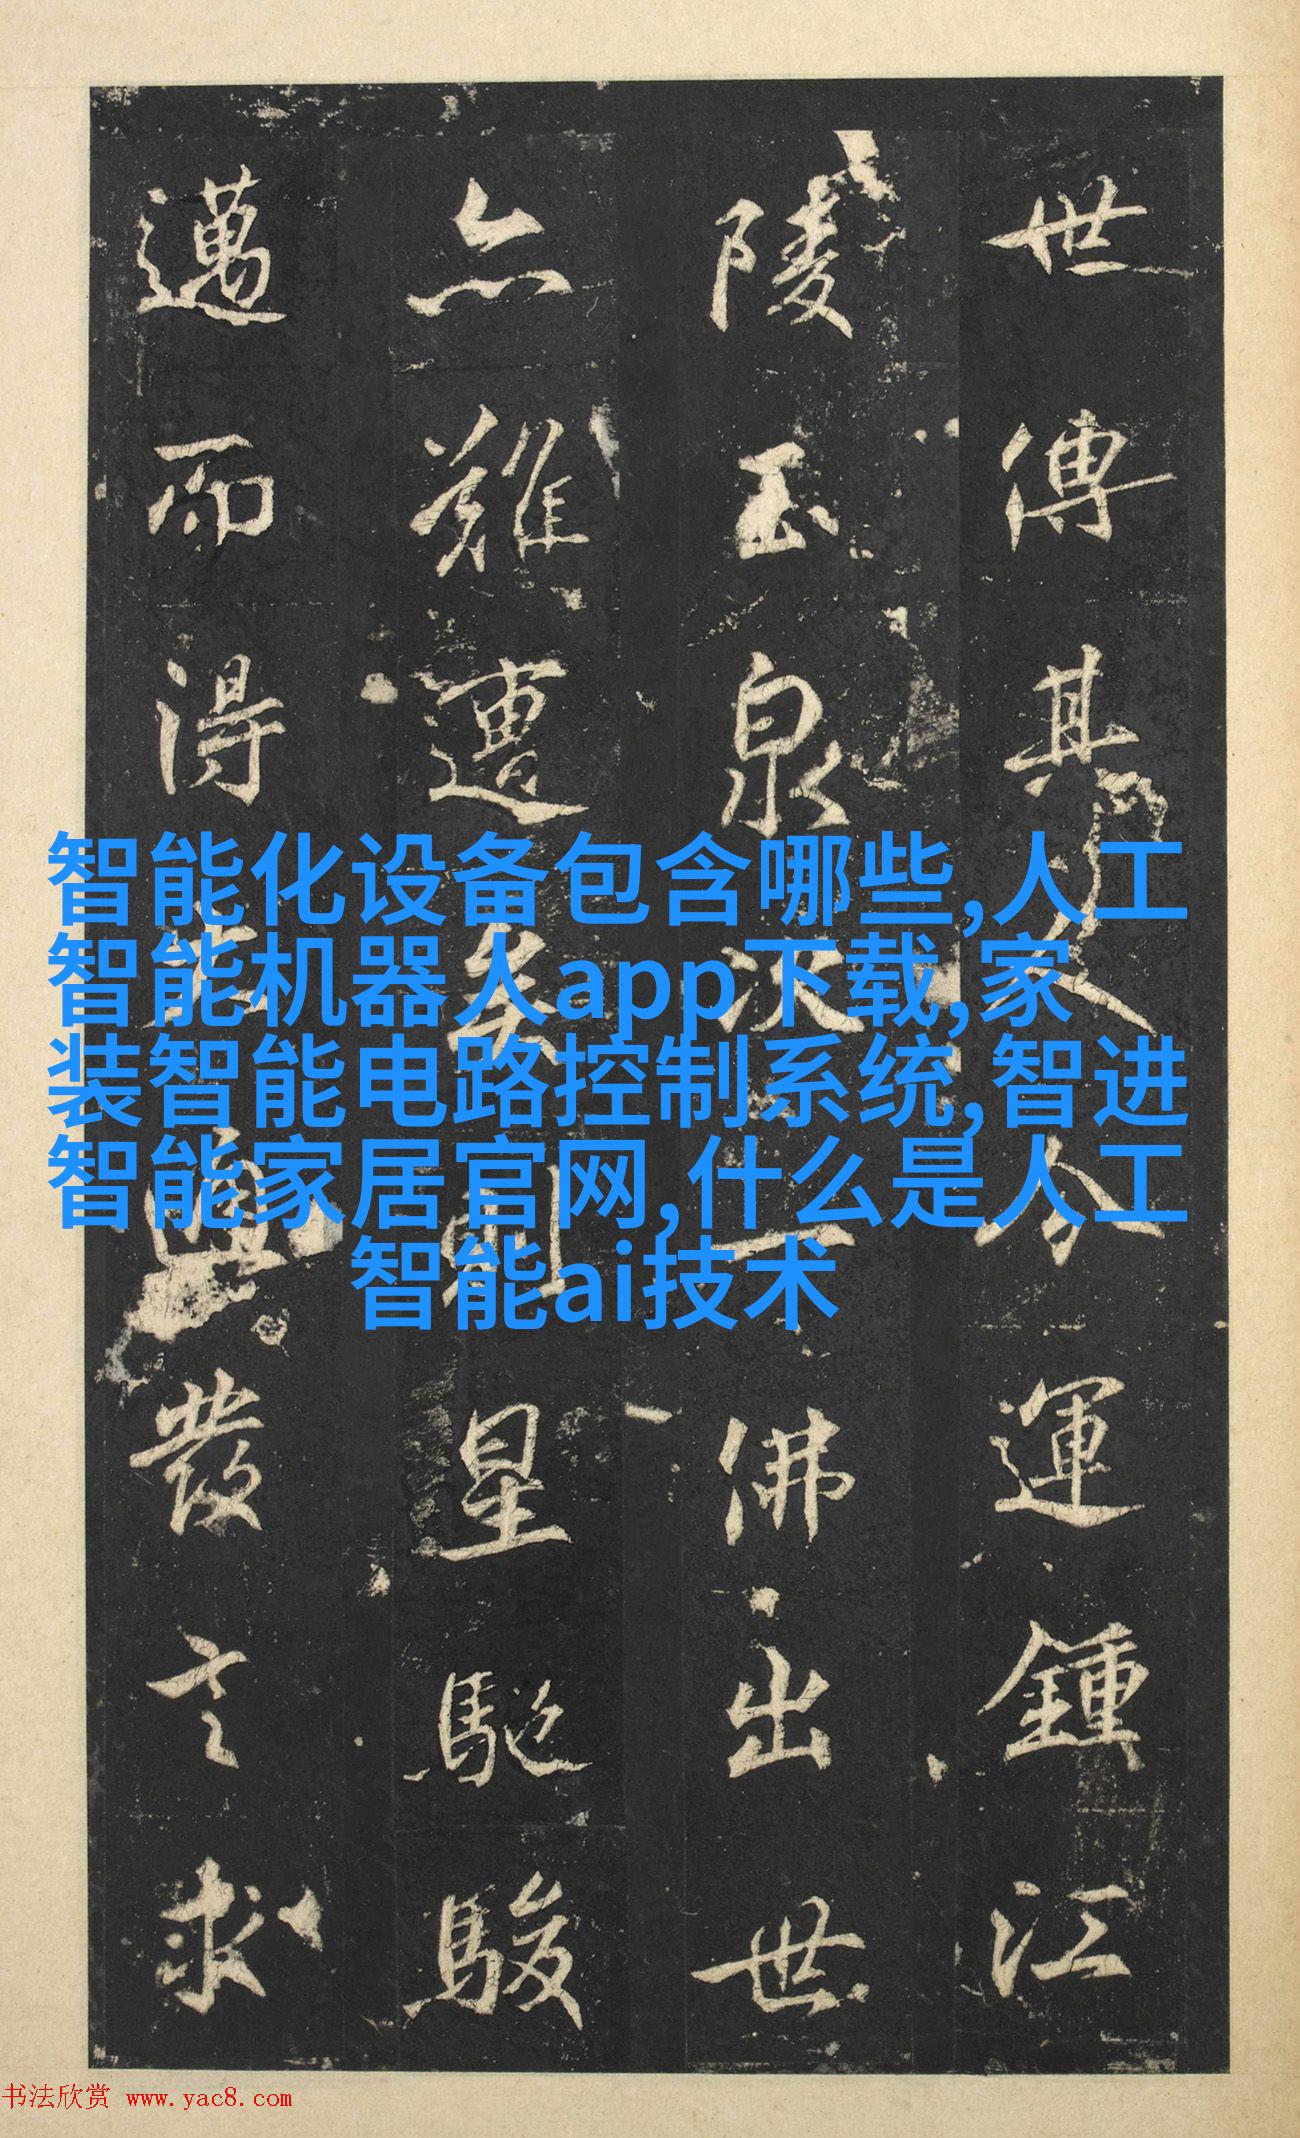 智能化设备包含哪些,人工
智能机器人app下载,家
装智能电路控制系统,智进
智能家居官网,什么是人工
智能ai技术
世傳其分運鍾江
陵玉泉次一佛出世
亦難遭矣星馳駿
邁而得興發言求
书法欣赏 www.yac8.com